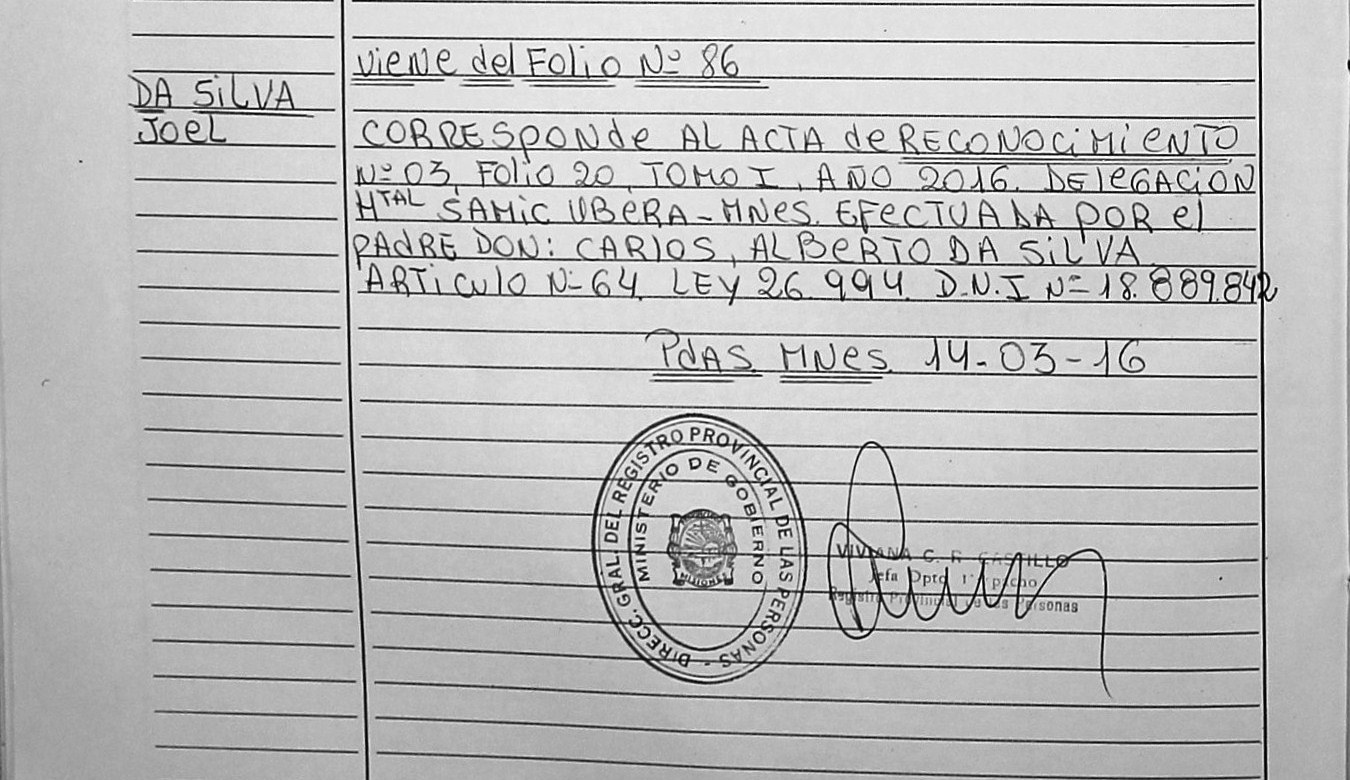 viene del Folio Nº 86
DA SiLVA
Joel
CORRESponde AL ACTA de RECONOCiMiENTO
Nº 03, Folio 20, TOMO I, AÑO 2016. DELEGACiON
HTAL SAMiC UBERA-MNES. EFECTUADA POR el
PADRE DON: CARlOS, ALBERTO DA SiLVA.
ARTiCulO Nº 64. LEY 26.994. D.N.I Nº 18.889.842
PdAS MNes. 14-03-16
DIRECC. GRAL. DEL REGISTRO PROVINCIAL DE LAS PERSONAS -
MINISTERIO DE GOBIERNO
MISIONES
VIVIANA C. R. CASTILLO
Jefa Dpto.
Registro Provincial de las Personas